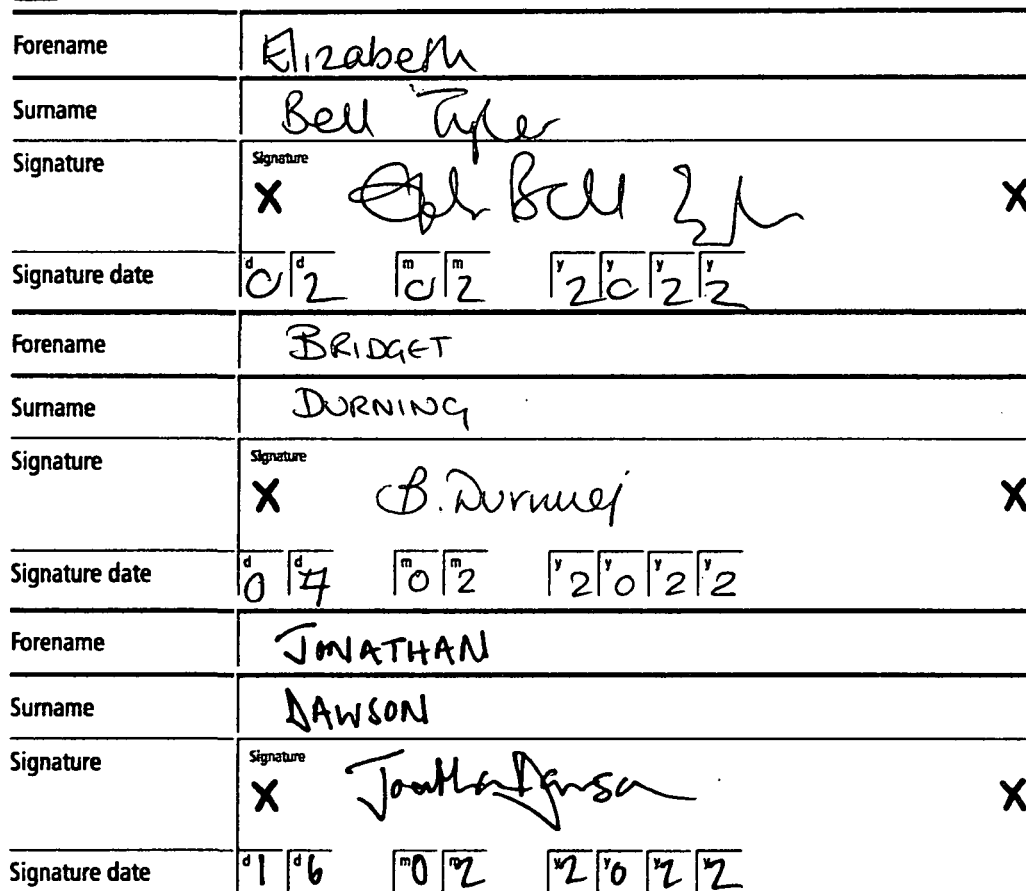 Forename Elizabeth
Surname Bell Tyler
Signature Signature X Bell X
Signature date d 0 d 2 m 0 m 2 y 2 y 0 y 2 y 2
Forename BRIDGET
Surname DURNING
Signature Signature X B. Durning X
Signature date d 0 d 7 m 0 m 2 y 2 y 0 y 2 y 2
Forename JONATHAN
Surname DAWSON
Signature Signature X Jonathan Dawson X
Signature date d 1 d 6 m 0 m 2 y 2 y 0 y 2 y 2